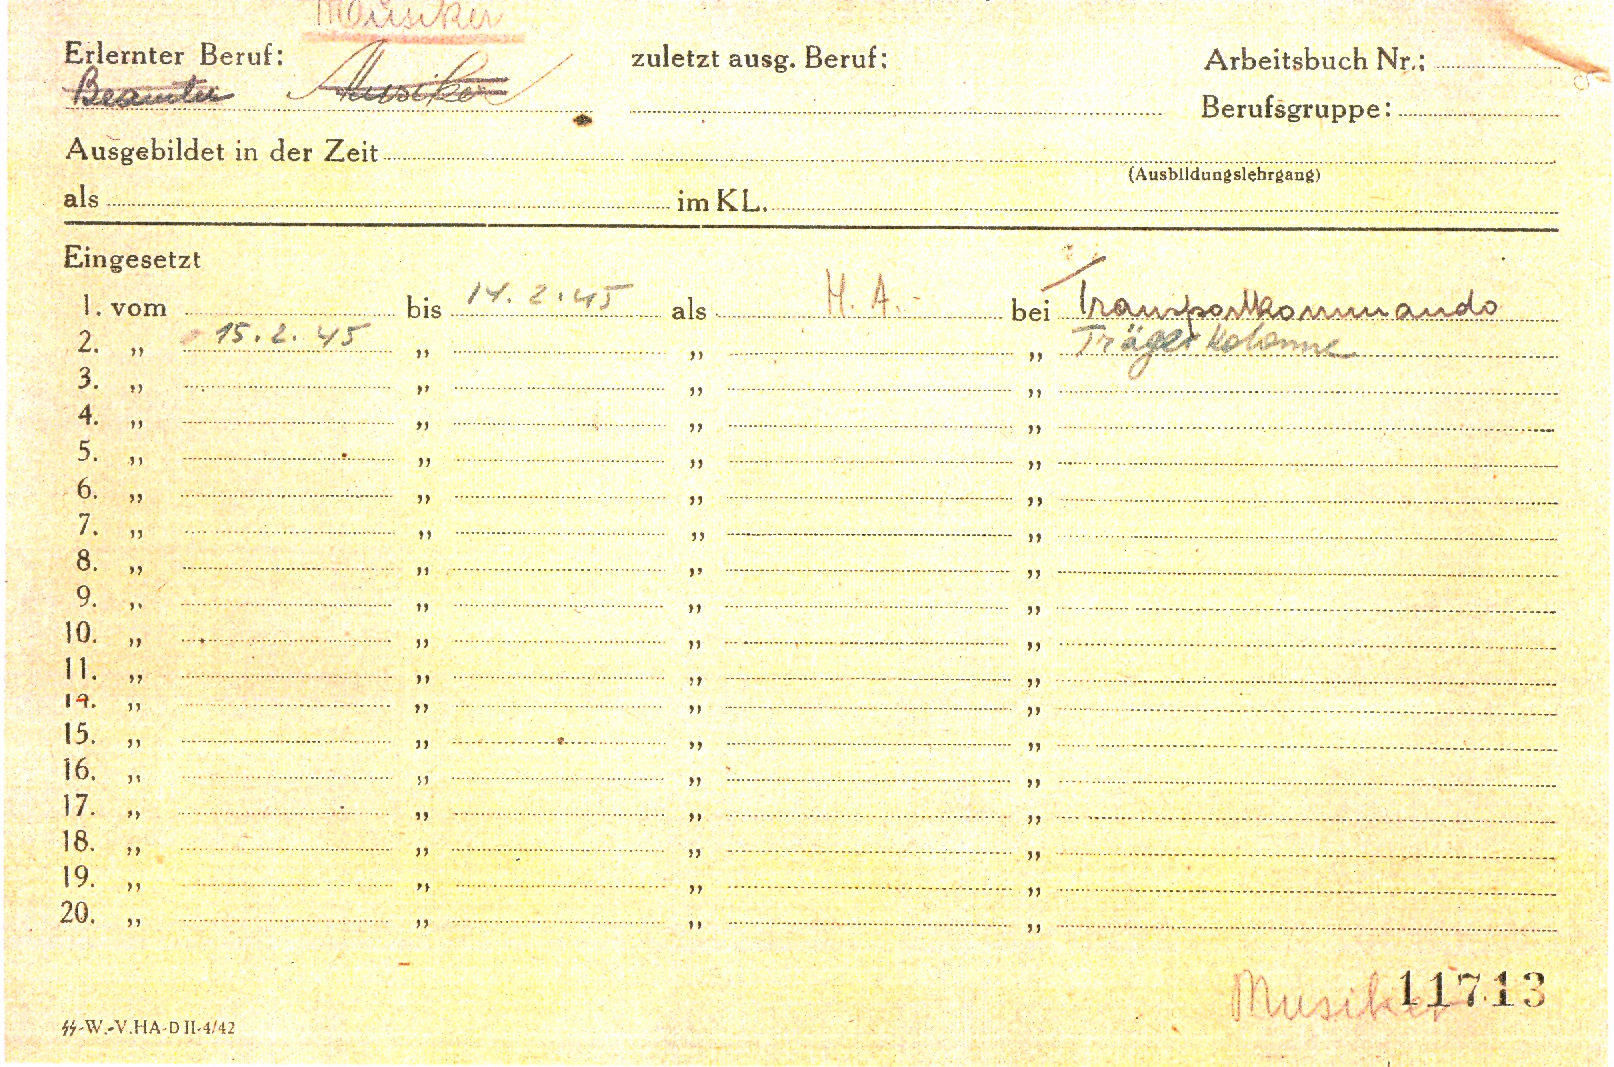 Musiker
Erlernter Beruf: zuletzt ausg. Beruf: Arbeitsbuch Nr.:
Beamter Musiker
Berufsgruppe:
Ausgebildet in der Zeit
(Ausbildungslehrgang)
als im KL.
Eingesetzt
1. vom bis 14.2.45 als H.A.- bei Transportkommando
2. „ 15.2.45 „ „ „ Trägerkolonne
3. „ „ „ „
4. „ „ „ „
5. „ „ „ „
6. „ „ „ „
7. „ „ „ „
8. „ „ „ „
9. „ „ „ „
10. „ „ „ „
11. „ „ „ „
14. „ „ „ „
15. „ „ „ „
16. „ „ „ „
17. „ „ „ „
18. „ „ „ „
19. „ „ „ „
20. „ „ „ „
Musiker 11713
SS-W.-V.HA-D II-4/42